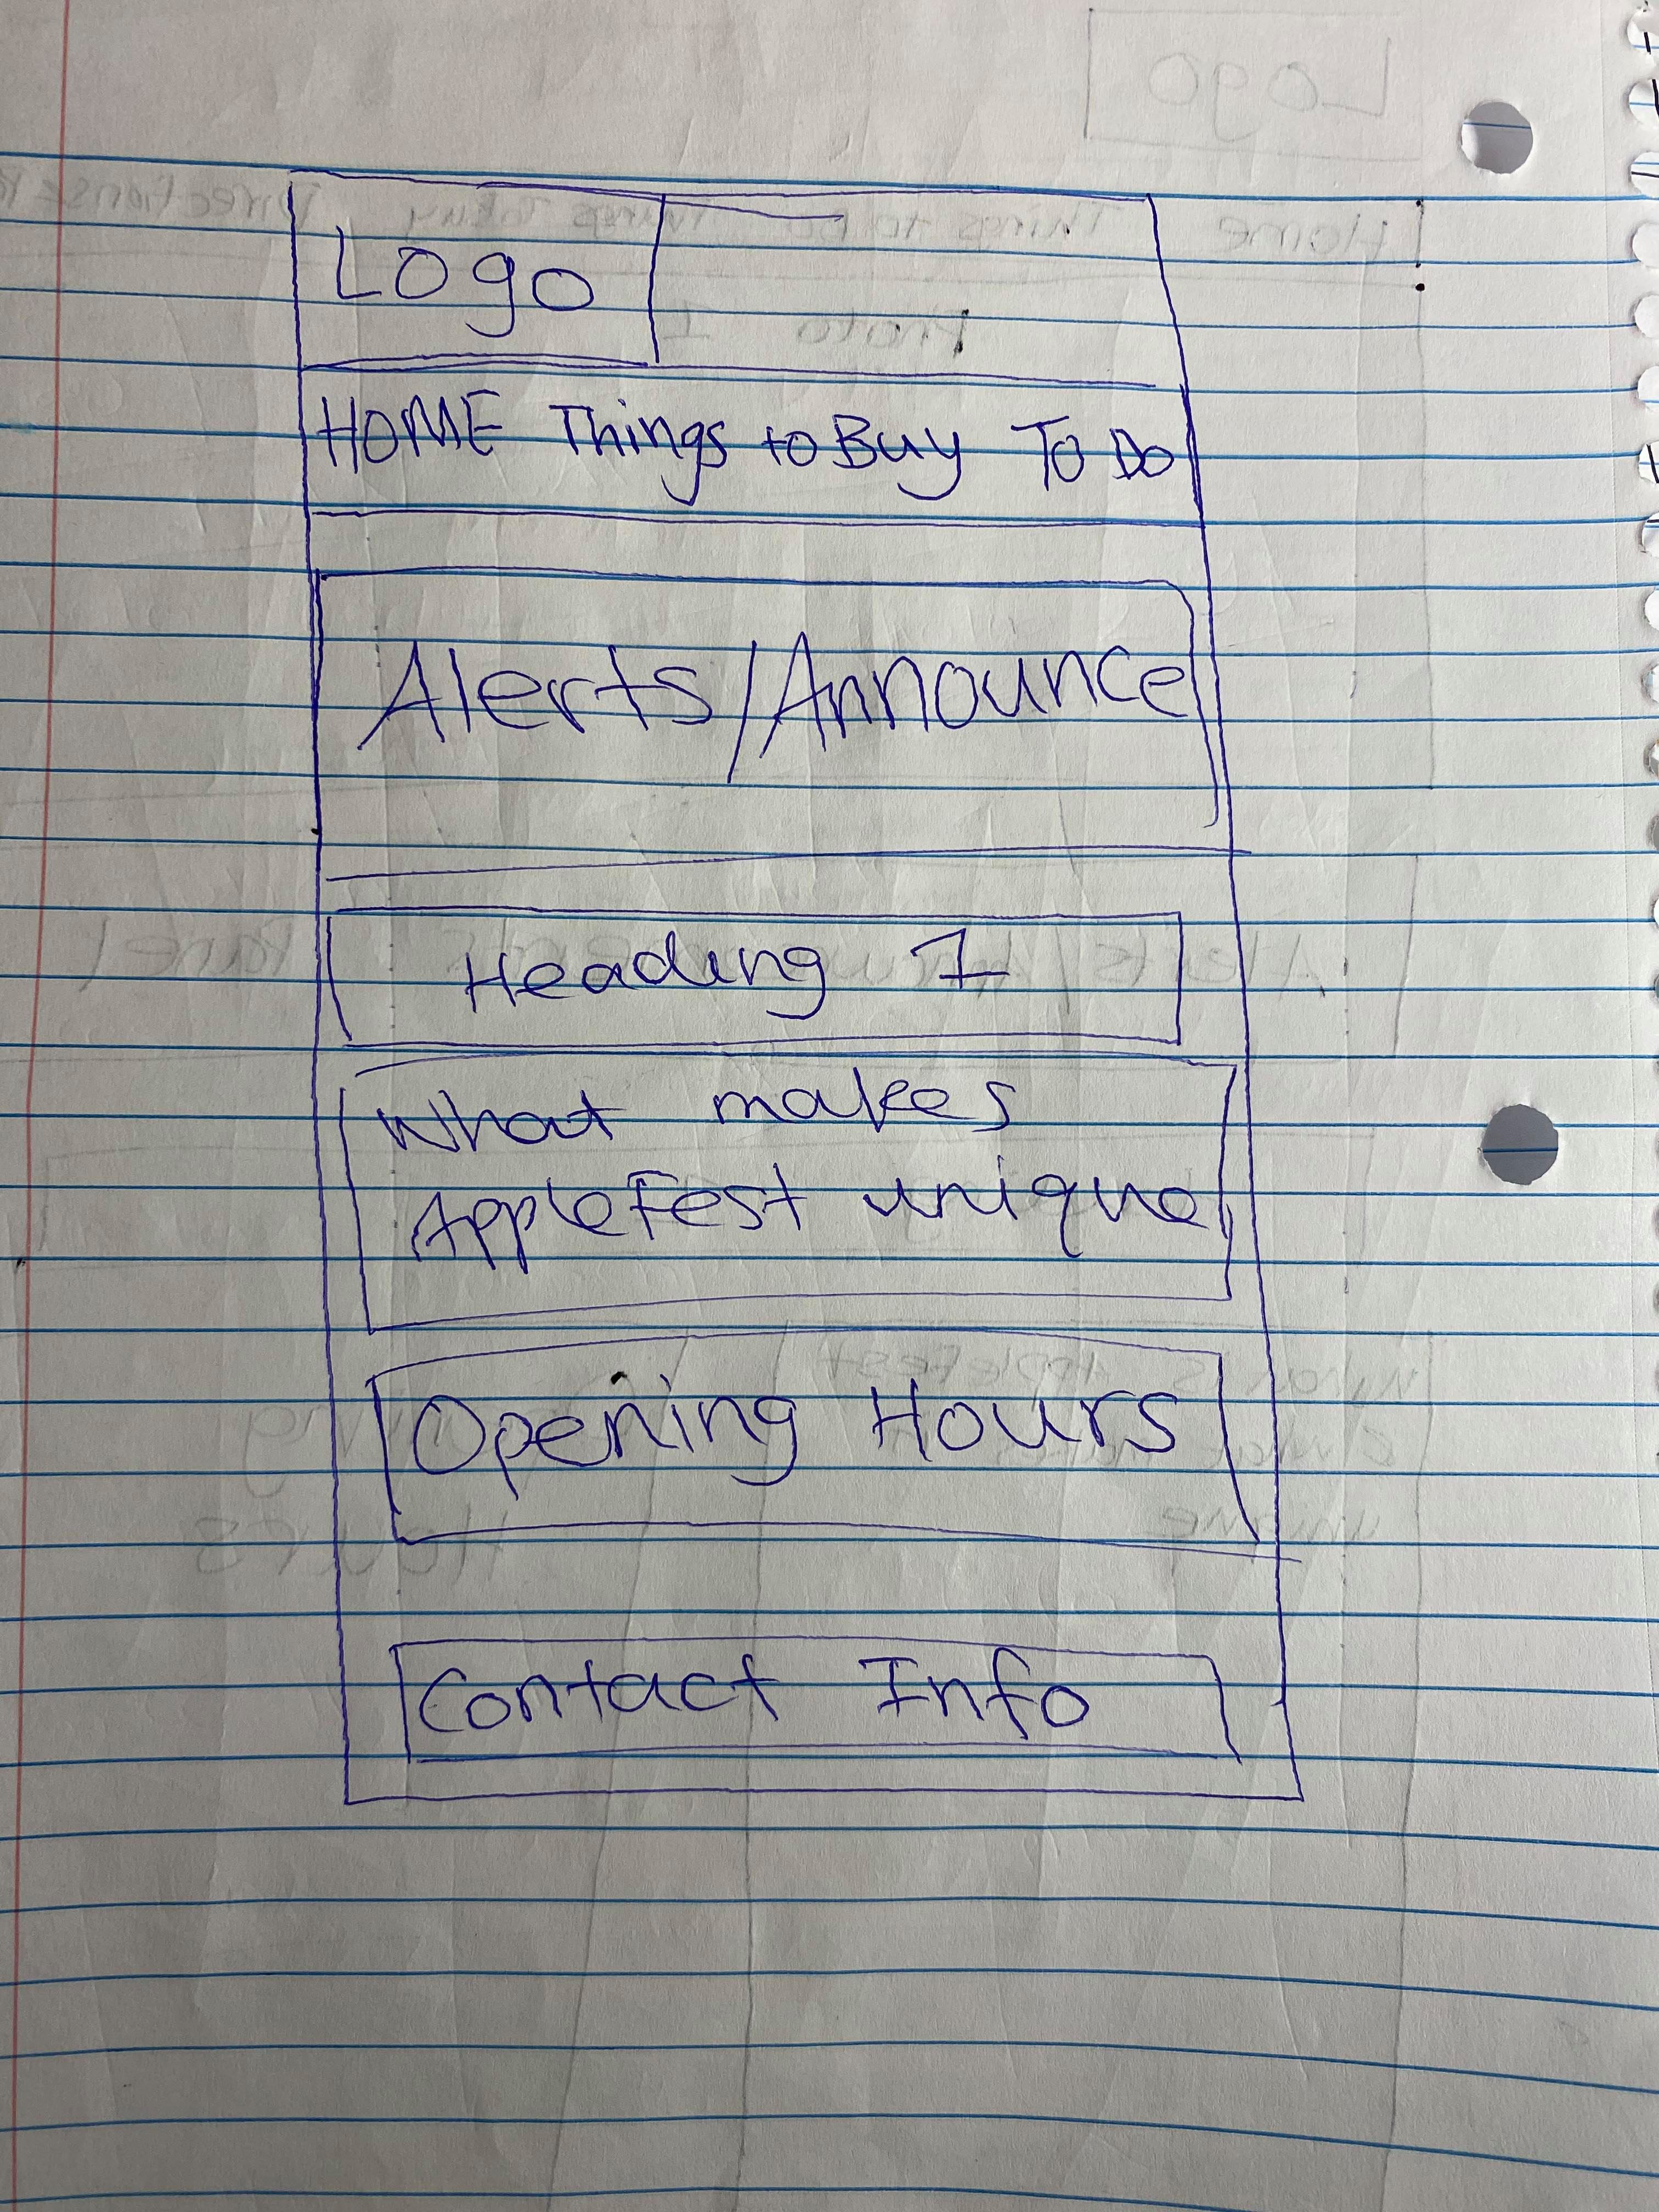 Logo
HOME Things to Buy To Do
Alerts/Announce
Heading 1
What makes
AppleFest unique
Opening Hours
Contact Info